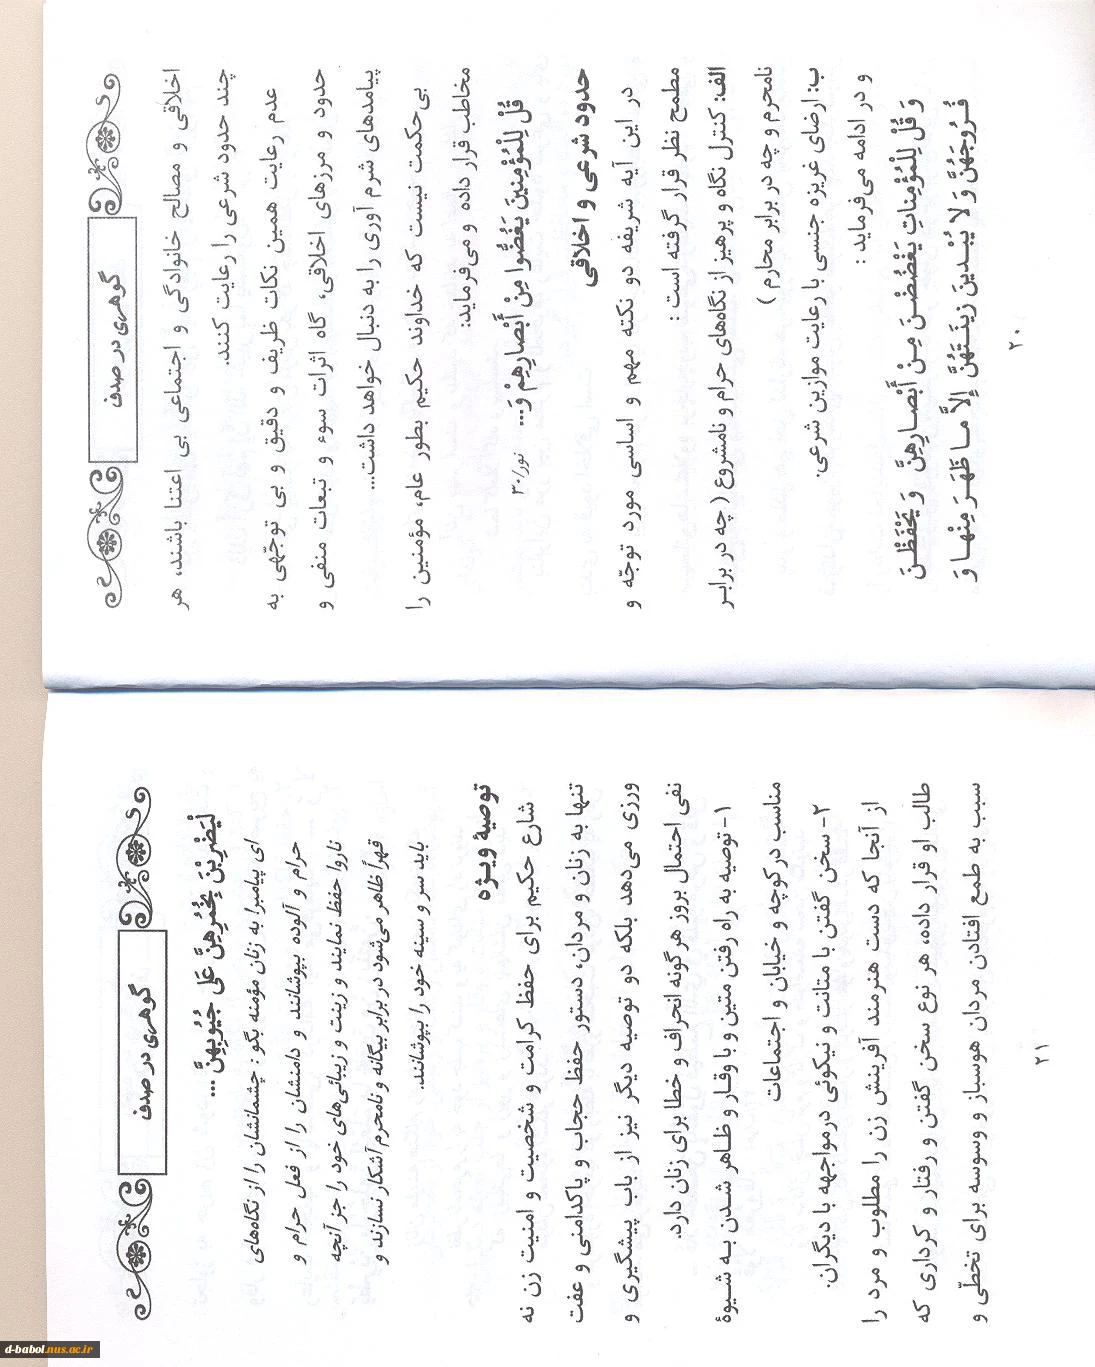 گوهری در صدف
اخلاقی و مصالح خانوادگی و اجتماعی بی اعتنا باشند، هر
چند حدود شرعی را رعایت کنند.
عدم رعایت همین نکات ظریف و دقیق و بی توجّهی به
حدود و مرزهای اخلاقی، گاه اثرات سوء و تبعات منفی و
پیامدهای شرم آوری را به دنبال خواهد داشت...
بی حکمت نیست که خداوند حکیم بطور عام، مؤمنین را
مخاطب قرار داده و می‌فرماید:
قُلْ لِلْمُؤْمِنینَ یَغُضُّوا مِنْ أَبْصارِهِمْ وَ... نور/۳۰
حدود شرعی و اخلاقی
در این آیه شریفه دو نکته مهم و اساسی مورد توجّه و
مطمح نظر قرار گرفته است :
الف: کنترل نگاه و پرهیز از نگاه‌های حرام و نامشروع ( چه در برابر
نامحرم و چه در برابر محارم )
ب: ارضای غریزه جنسی با رعایت موازین شرعی.
و در ادامه می‌فرماید :
وَ قُلْ لِلْمُؤْمِناتِ یَغْضُضْنَ مِنْ أَبْصارِهِنَّ وَ یَحْفَظْنَ
فُرُوجَهُنَّ وَ لا یُبْدینَ زینَتَهُنَّ إِلاَّ ما ظَهَرَ مِنْها وَ
۲۰
گوهری در صدف
لْیَضْرِبْنَ بِخُمُرِهِنَّ عَلی جُیُوبِهِنَّ ...
ای پیامبر! به زنان مؤمنه بگو : چشمانشان را از نگاه‌های
حرام و آلوده بپوشانند و دامنشان را از فعل حرام و
ناروا حفظ نمایند و زینت و زیبائی‌های خود را جز آنچه
قهراً ظاهر می‌شود در برابر بیگانه و نامحرم آشکار نسازند و
باید سر و سینه خود را بپوشانند.
توصیۀ ویژه
شارع حکیم برای حفظ کرامت و شخصیت و امنیت زن نه
تنها به زنان و مردان، دستور حفظ حجاب و پاکدامنی و عفت
ورزی می‌دهد بلکه دو توصیه دیگر نیز از باب پیشگیری و
نفی احتمال بروز هر گونه انحراف و خطا برای زنان دارد.
۱- توصیه به راه رفتن متین و با وقار و ظاهر شدن به شیوۀ
مناسب در کوچه و خیابان و اجتماعات
۲- سخن گفتن با متانت و نیکوئی در مواجهه با دیگران.
از آنجا که دست هنرمند آفرینش زن را مطلوب و مرد را
طالب او قرار داده، هر نوع سخن گفتن و رفتار و کرداری که
سبب به طمع افتادن مردان هوسباز و وسوسه برای تخطّی و
۲۱
d-babol.nus.ac.ir